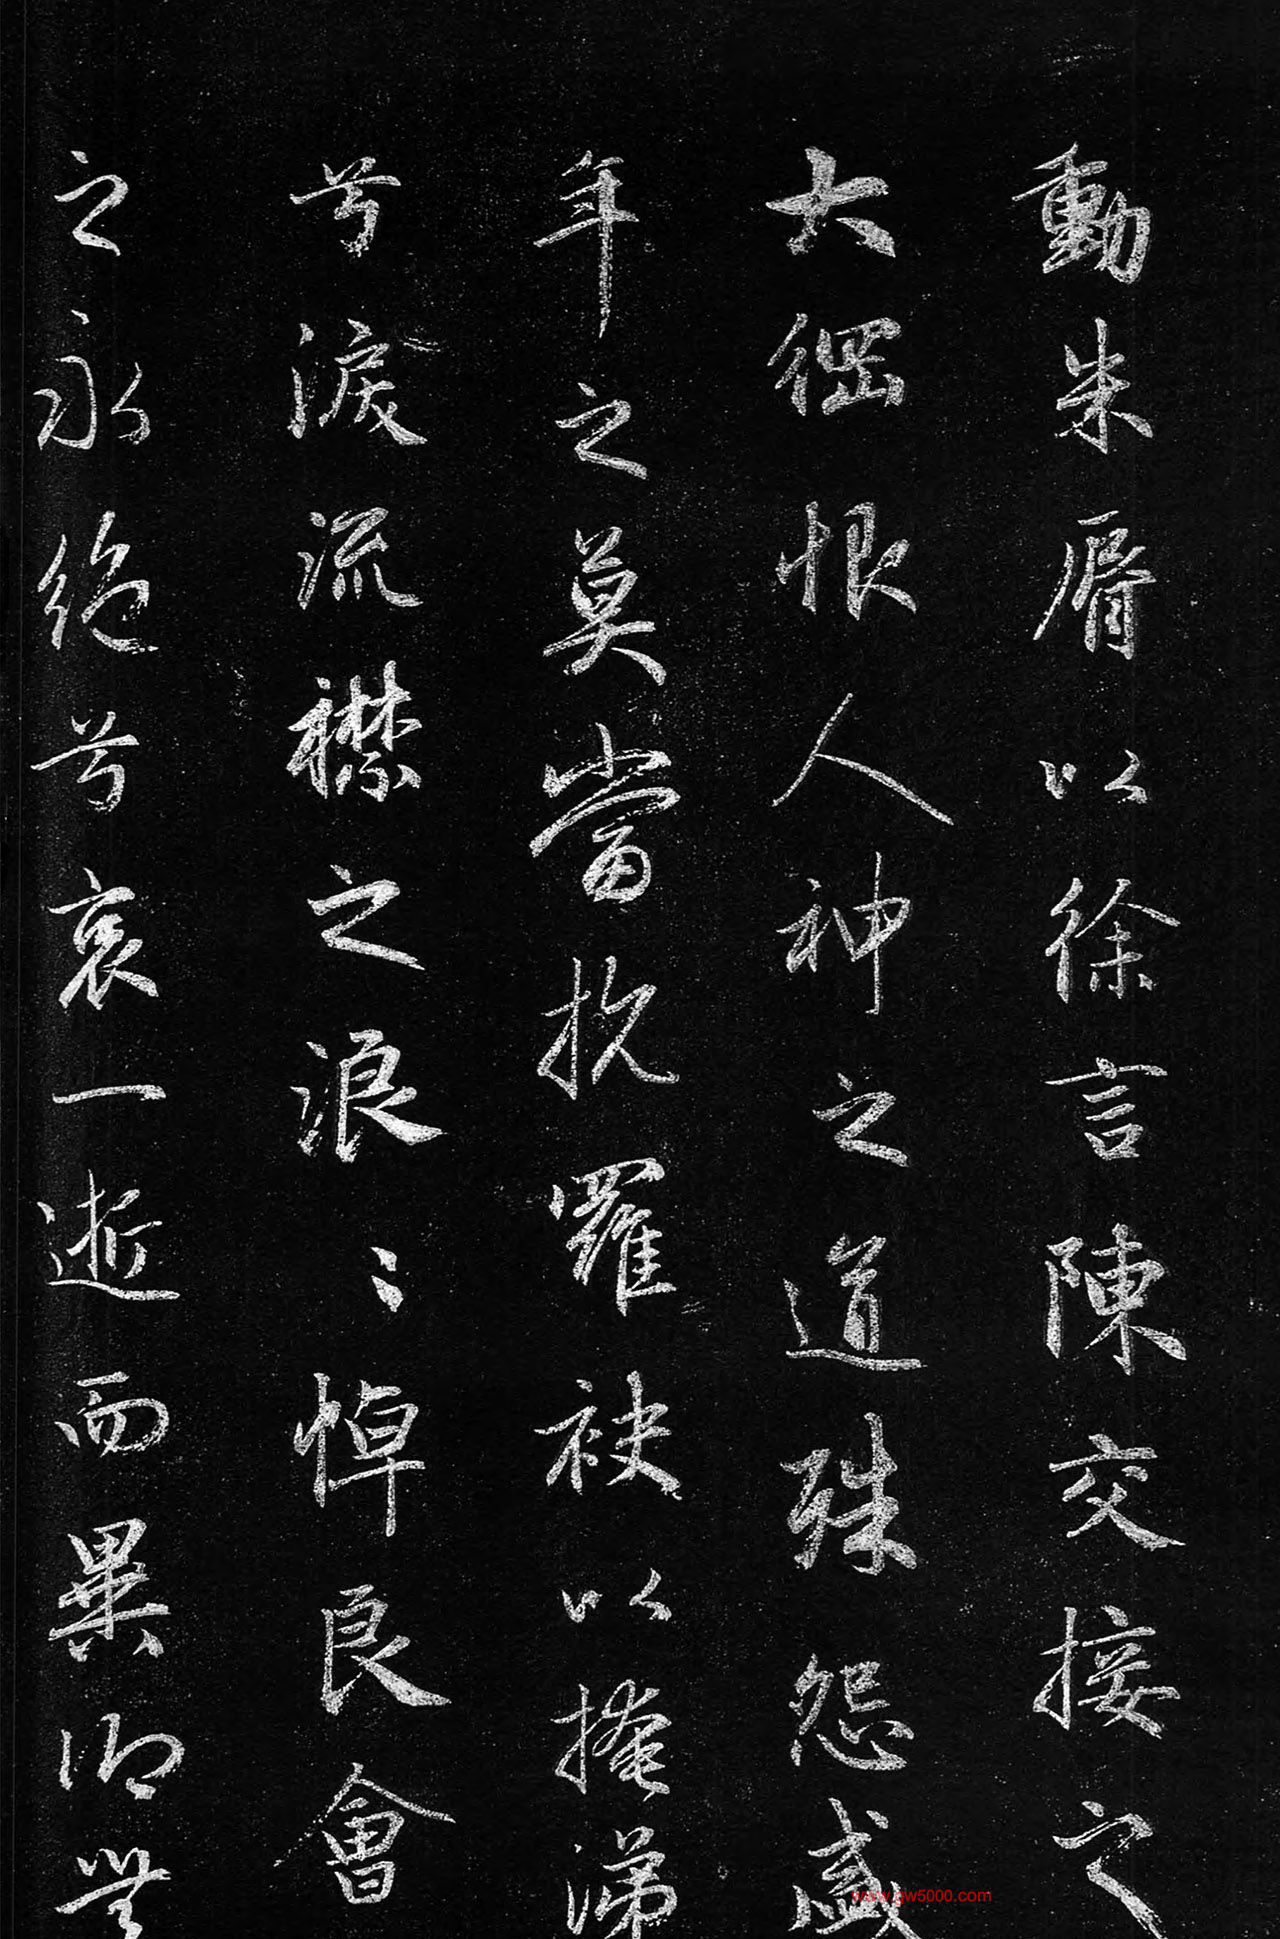 動朱脣以徐言陳交接之
大綱恨人神之道殊怨盛
年之莫當抗羅袂以掩涕
兮淚流襟之浪〻悼良會
之永絕兮哀一逝而異鄉無
www.gw5000.com